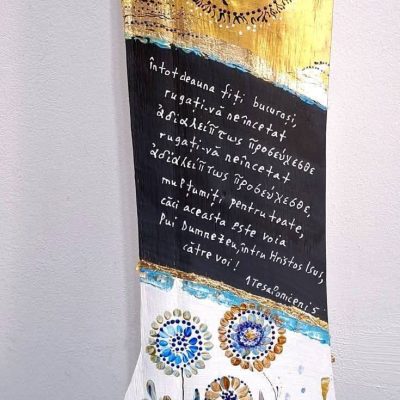 întotdeauna fiți bucuroși,
rugați-vă neîncetat
ἀδιαλείπτως προσεύχεσθε
rugați-vă neîncetat
ἀδιαλείπτως προσεύχεσθε,
mulțumiți pentru toate,
căci aceasta este voia
lui Dumnezeu, întru Hristos Isus,
către voi!
1 Tesaloniceni 5